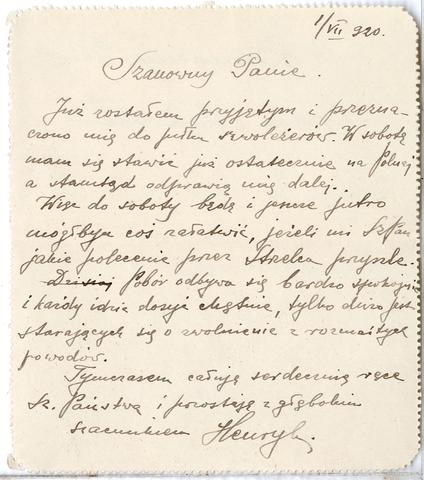 1/VII 920.
Szanowny Panie.
Już zostałem przyjętym i przezna-
czono mię do pułku szwoleżerów. W sobotę
mam się stawić już ostatecznie na
a stamtąd odprawią mię dalej..
Więc do soboty będę i jeszcze jutro
mógłbym coś załatwić, jeżeli mi Sz Pan
jakie polecenie przez Strelca przyszle.
Dzisiaj Pobór odbywa się bardzo spokojnie
i każdy idzie dosyć chętnie, tylko dużo jest
starających się o zwolnienie z rozmaitych
powodów.
Tymczasem całuję serdecznie ręce
Sz. Państwa i pozostaję z głębokim
szacunkiem Henryk.